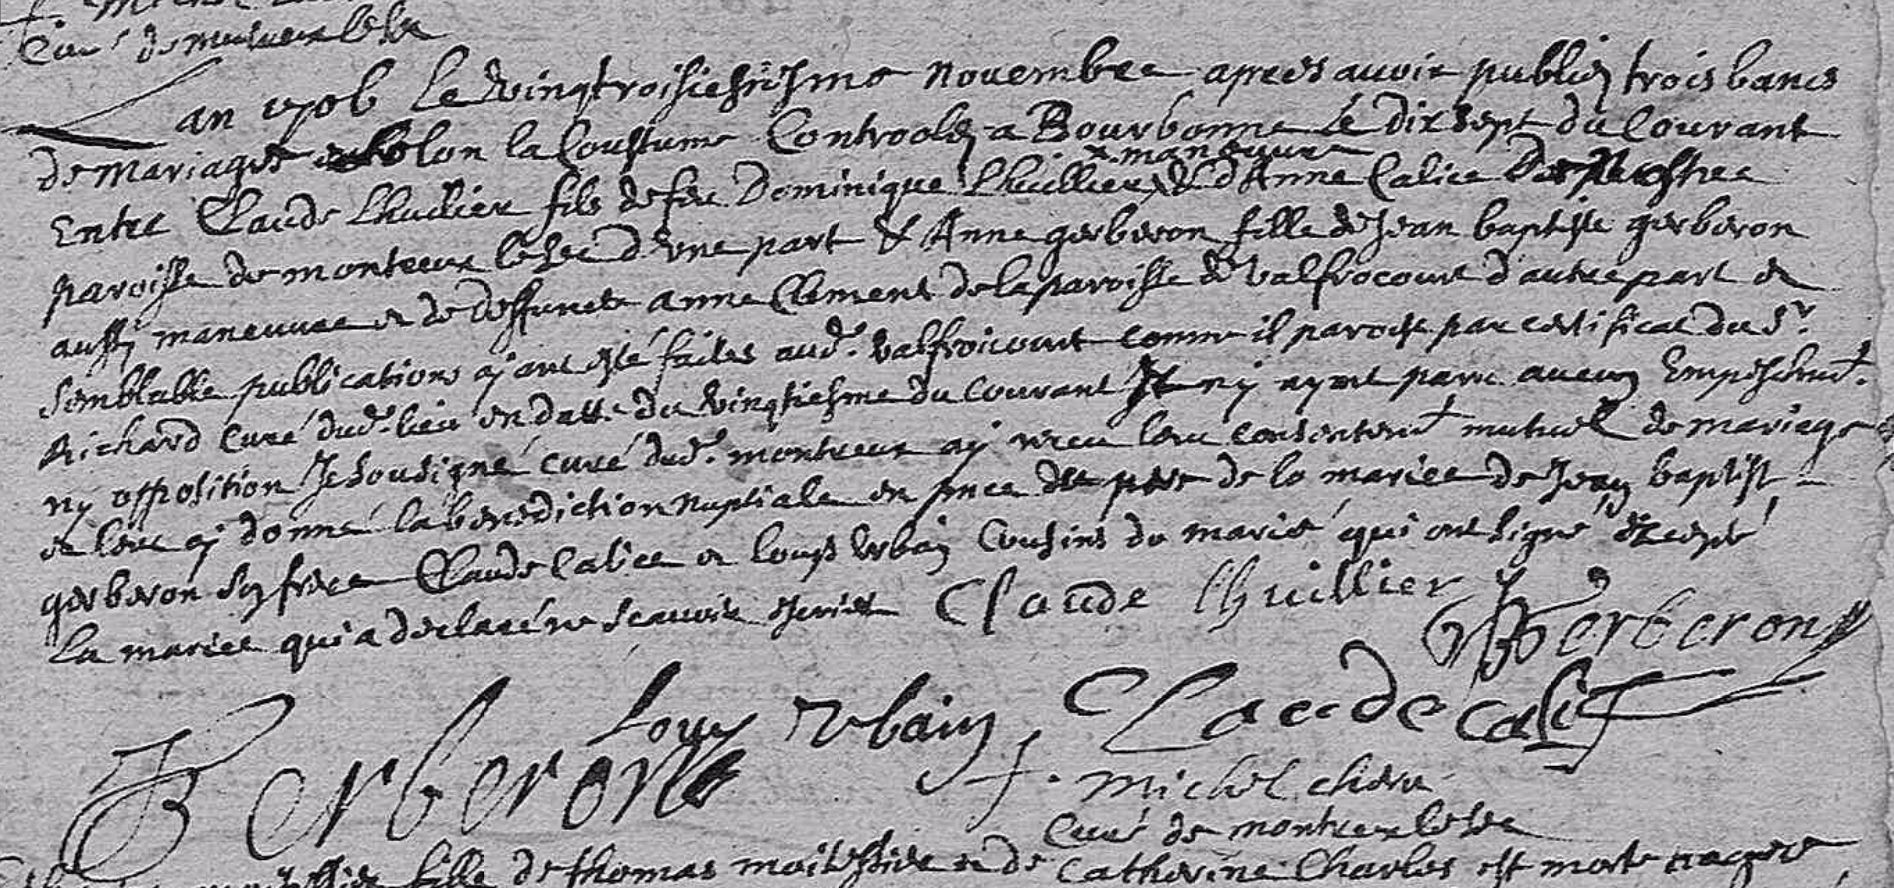 Curé de montreux le sec
Lan 1706 Le vingtroisiesme novembre apres avoir publié trois bancs
de mariages selon la Coustume Controolé a Bourbonne le dix sept du Courant
x manouvre
Entre Claude Lhuillier fils de feu Dominique Lhuillier x & d'Anne Calice de Nostre
paroisse de montreux le sec d'une part & Anne gerberon fille de Jean baptiste gerberon
aussy maneuvre et de deffuncte anne Clement de la paroisse de valfrocourt d'autre part et
semblable publications ayant esté faites aud. valfroicourt comme il paroist par certificat du Sr.
Richard curé dud. lieu en datte du vingtiesme du courant Et ny ayant paru aucun Empeschmt.
ny opposition Je sousigné curé dud. montreux ay receu leur consentemt mutuel de mariage
et leur ay donné la benediction nuptiale en pnce du pere de la mariee de Jean baptist
gerberon son frere Claude Calice et Louys Urbain Cousins du marié qui ont signé Excepté
La mariee qui a declaré ne scavoir escrire Claude lhuillier
Gerberon
Louys Vrbain Claude Calis
Gerberon
f. Michel
Curé de montreux le sec
fille de thomas et de Catherine Charles est morte